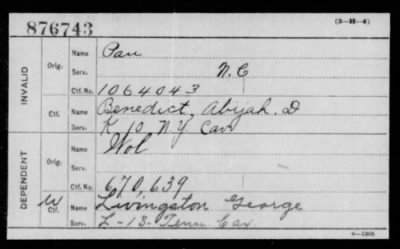 876743
(3—H—4)
INVALID
Orig.
Name
Serv.
N.C
Ctf. No.
1064043
Ctf.
Name
Benedict, Abijah. D
Serv.
K 10. N.Y. Cav
DEPENDENT
Orig.
Name
Serv.
Ctf. No.
670,639
W
Ctf.
Name
Livingston George
Serv.
L-13-Tenn Cav